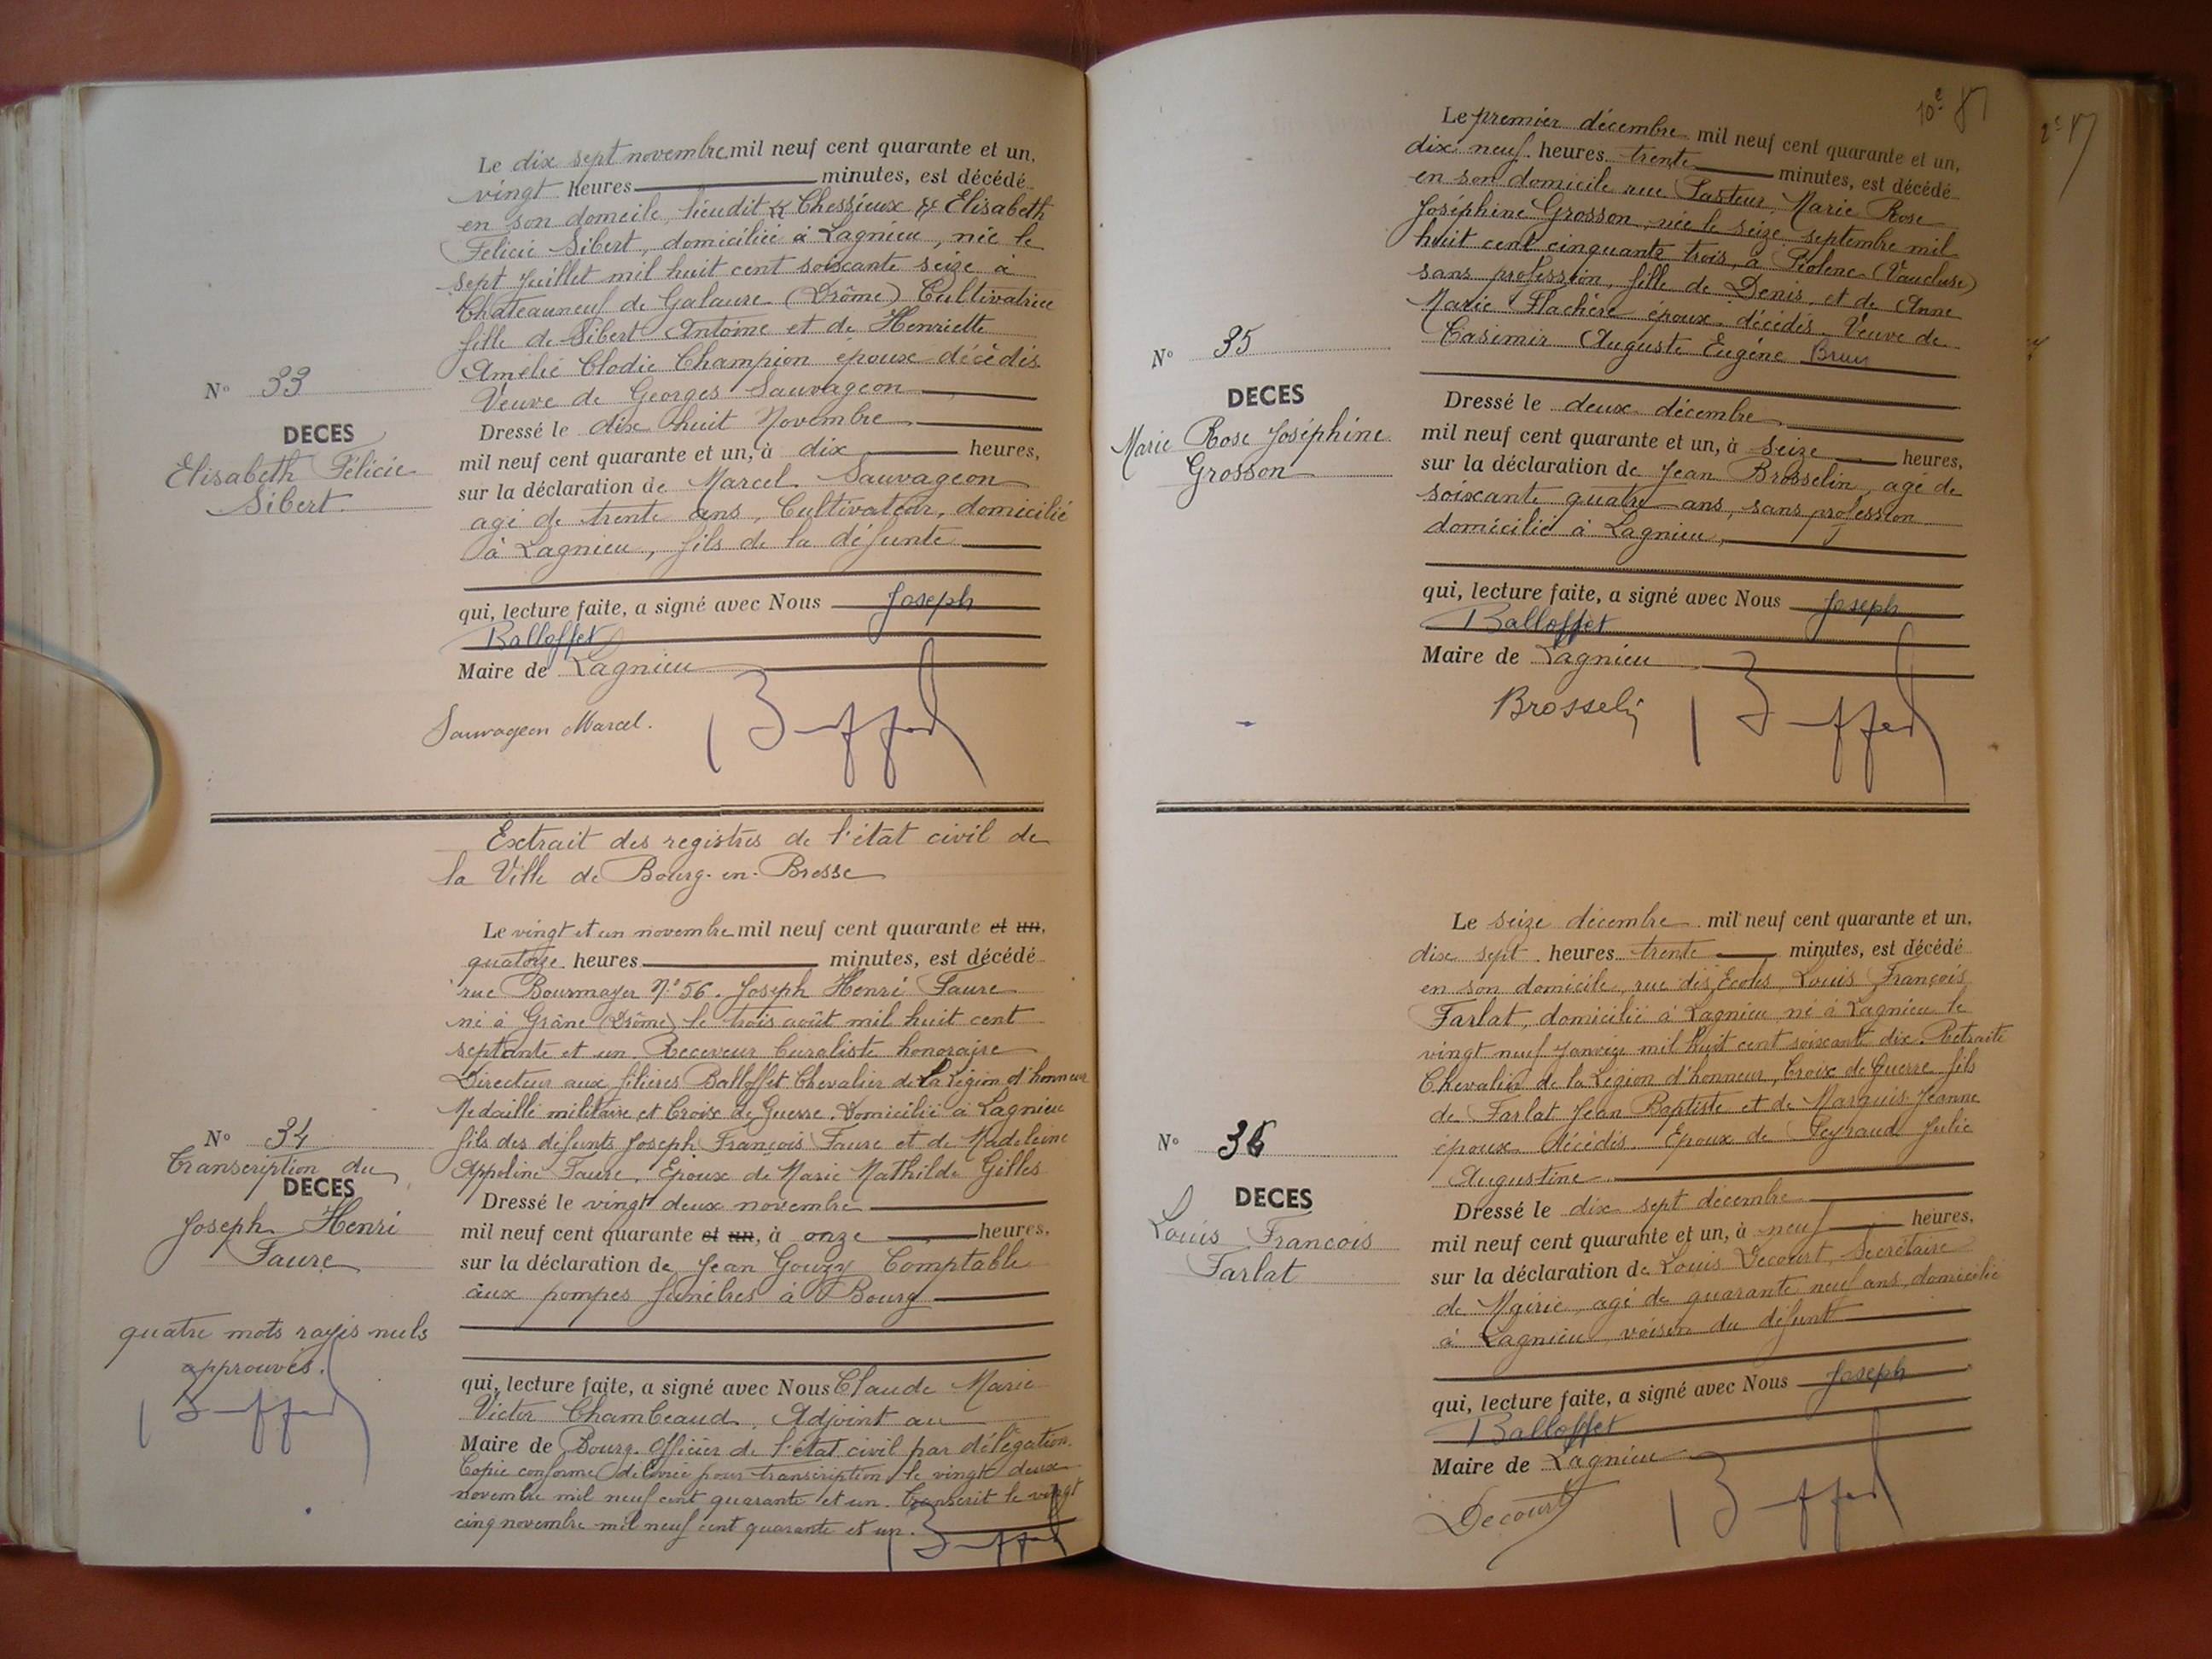 Le dix sept novembre mil neuf cent quarante et un,
vingt heures minutes, est décédé
en son domicile, lieudit « Chessieux » Elisabeth
Félicie Sibert, domiciliée à Lagnieu, née le
sept Juillet mil huit cent soixante seize à
Chateauneuf de Galaure (Drôme) Cultivatrice
fille de Sibert Antoine et de Henriette
Amélie Clodie Champion époux décédés.
Veuve de Georges Sauvageon
N° 33
DECES
Elisabeth Félicie
Sibert.
Dressé le dix huit Novembre
mil neuf cent quarante et un, à dix heures,
sur la déclaration de Marcel Sauvageon
agé de trente ans, Cultivateur, domicilié
à Lagnieu, fils de la défunte
qui, lecture faite, a signé avec Nous Joseph
Balloffet
Maire de Lagnieu
Sauvageon Marcel.
Extrait des registres de l'état civil de
la Ville de Bourg-en-Bresse
Le vingt et un novembre mil neuf cent quarante et un,
quatorze heures minutes, est décédé
rue Bourmayer N° 56. Joseph Henri Faure
né à Grâne (Drôme) le trois août mil huit cent
septante et un Receveur buraliste honoraire
Directeur aux filières Balloffet Chevalier de la Légion d'honneur
Médaille militaire et Croix de Guerre. Domicilié à Lagnieu
fils des défunts Joseph François Faure et de Madeleine
Appoline Faure. Epoux de Marie Mathilde Gilles
N° 34
Transcription du
DECES
Joseph Henri
Faure
quatre mots rayés nuls
approuvés.
Dressé le vingt deux novembre
mil neuf cent quarante et un, à onze heures,
sur la déclaration de Jean Gouzy Comptable
aux pompes funèbres à Bourg
qui, lecture faite, a signé avec Nous Claude Marie
Victor Chambeaud, Adjoint au
Maire de Bourg. Officier de l'état civil par délégation.
Copie conforme délivrée pour transcription le vingt deux
novembre mil neuf cent quarante et un. Transcrit le vingt
cinq novembre mil neuf cent quarante et un.
10e
Le premier décembre mil neuf cent quarante et un,
dix neuf heures trente minutes, est décédé
en son domicile rue Pasteur, Marie Rose
Joséphine Grosson, née le seize septembre mil
huit cent cinquante trois, à Piolenc (Vaucluse)
sans profession, fille de Denis, et de Anne
Marie Flachère époux décédés. Veuve de
Casimir Auguste Eugène Brun
N° 35
DECES
Marie Rose Joséphine
Grosson
Dressé le deux décembre
mil neuf cent quarante et un, à seize heures,
sur la déclaration de Jean Brosselin, agé de
soixante quatre ans, sans profession
domicilié à Lagnieu,
qui, lecture faite, a signé avec Nous Joseph
Balloffet
Maire de Lagnieu
Brosselin
Le seize décembre mil neuf cent quarante et un,
dix sept heures trente minutes, est décédé
en son domicile, rue des Ecoles, Louis François
Farlat, domicilié à Lagnieu né à Lagnieu le
vingt neuf Janvier mil huit cent soixante dix Retraité
Chevalier de la Légion d'honneur, Croix de Guerre fils
de Farlat Jean Baptiste et de Marquis Jeanne
époux décédés. Epoux de Peyraud Julie
Augustine
N° 36
DECES
Louis François
Farlat
Dressé le dix sept décembre
mil neuf cent quarante et un, à neuf heures,
sur la déclaration de Louis Decourt, Secrétaire
de Mairie, agé de quarante neuf ans, domicilié
à Lagnieu voisin du défunt
qui, lecture faite, a signé avec Nous Joseph
Balloffet
Maire de Lagnieu
Decourt